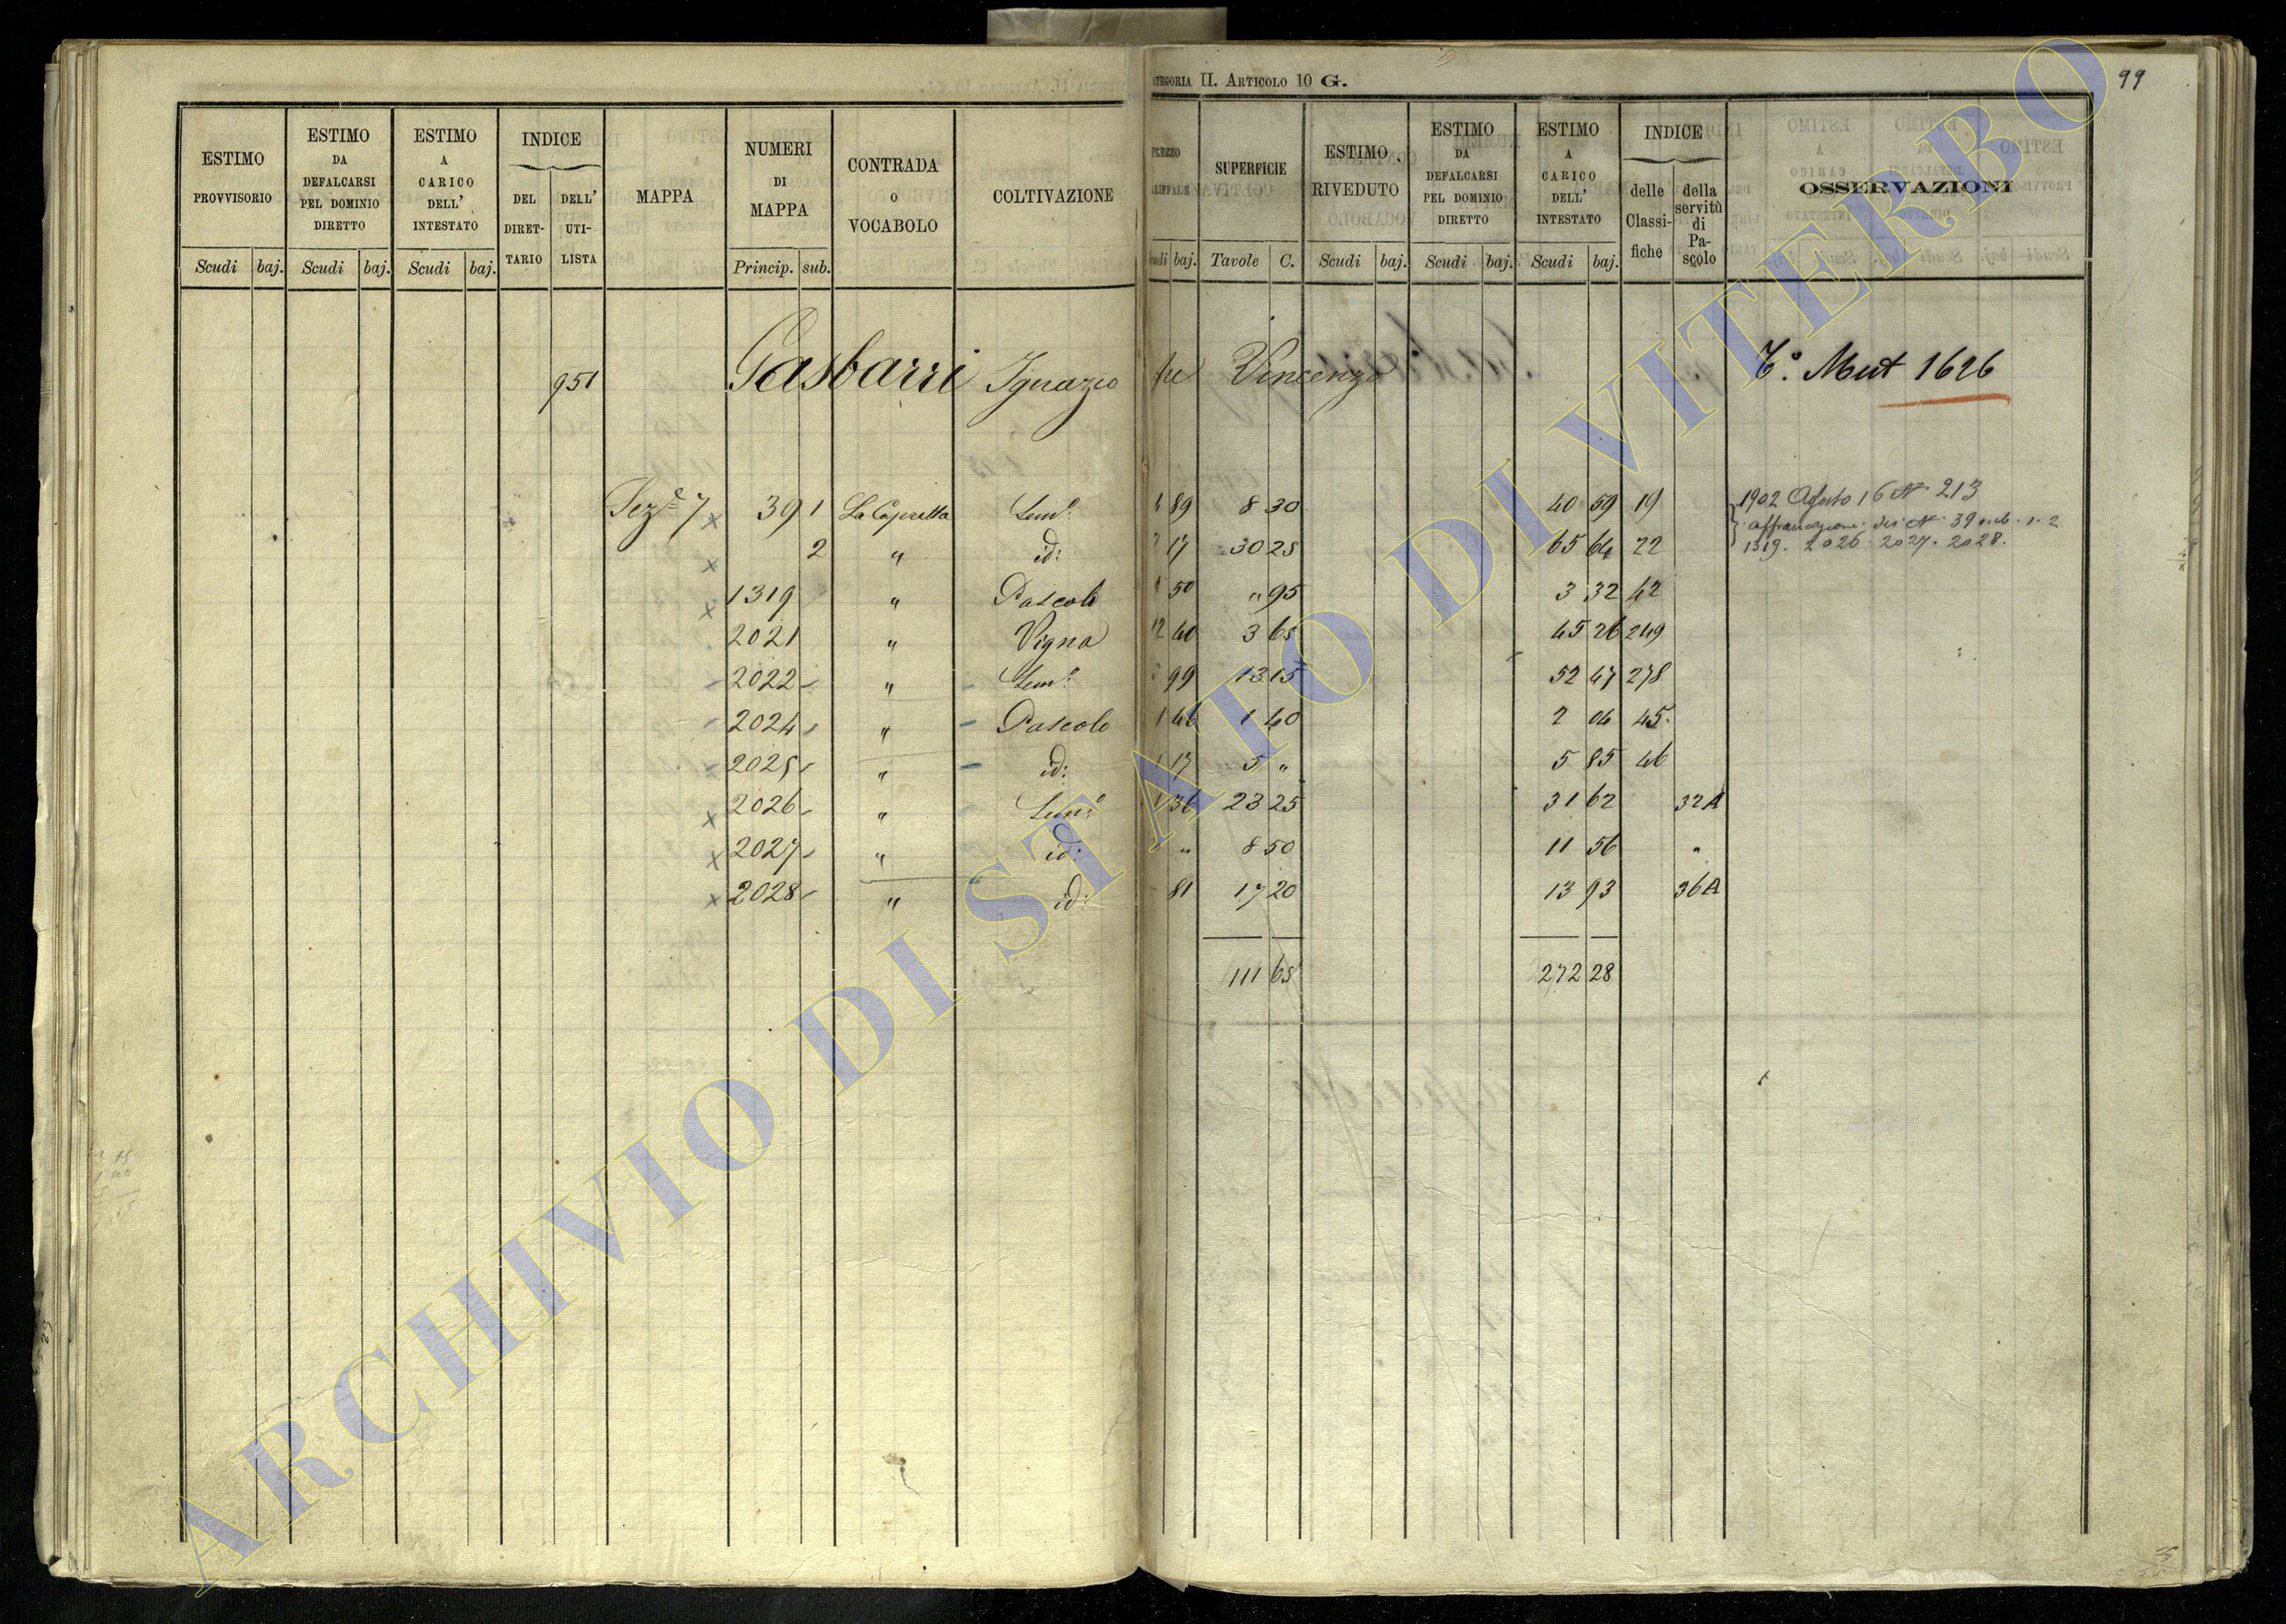 CATEGORIA II. ARTICOLO 10 G.
99
ESTIMO PROVVISORIO Scudi baj.
ESTIMO DA DEFALCARSI PEL DOMINIO DIRETTO Scudi baj.
ESTIMO A CARICO DELL' INTESTATO Scudi baj.
INDICE DEL DIRETTARIO DELL' UTILISTA
MAPPA
NUMERI DI MAPPA Princip. sub.
CONTRADA O VOCABOLO
COLTIVAZIONE
PREZZO baj.
SUPERFICIE Tavole C.
ESTIMO RIVEDUTO Scudi baj.
ESTIMO DA DEFALCARSI PEL DOMINIO DIRETTO Scudi baj.
ESTIMO A CARICO DELL' INTESTATO Scudi baj.
INDICE delle Classifiche della servitù di Pascolo
OSSERVAZIONI
951 Gasbarri Ignazio Vincenzo Mut 1626
Sez.e 7 39 1 Sem.o 89 8 30 40 59 19
2 " id: 17 30 25 65 64 22
1319 " Pascolo 50 " 95 3 32 42
2021 " Vigna 12 40 3 65 45 26 249
2022 " Sem.o 99 13 15 52 47 278
2024 " Pascolo 1 46 1 40 2 04 45
2025 " id: 1 17 5 " 5 85 46
2026 " Sem.o 1 36 23 25 31 62 32A
2027 " id: " 8 50 11 56 "
2028 " id: 81 17 20 13 93 36A
111 65 272 28
1902 Agosto 16 N. 213
affrancazione dei N. 39 sub. 1. 2
1319. 2026. 2027. 2028.
ARCHIVIO DI STATO DI VITERBO